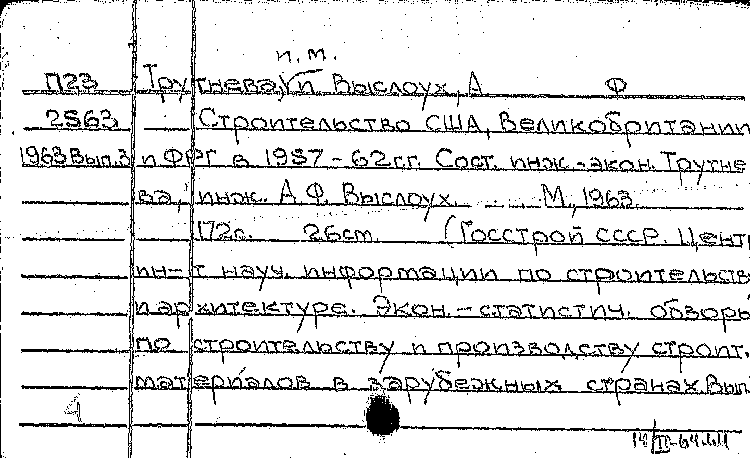 и.м.
П23 Трутнева, и Выслоух, А Ф
2563 Строительство США, Великобритании
1963 Вып.3 и ФРГ в 1957-62гг. Сост. инж.-экон. Трутне
ва, инж. А.Ф. Выслоух. М., 1963.
172с. 26cm. (Госстрой СССР. Центр
ин-т науч. информации по строительств
и архитектуре. Экон.-статистич. обзоры
по строительству и производству строит.
материалов в зарубежных странах. Вып
4
14/II-64